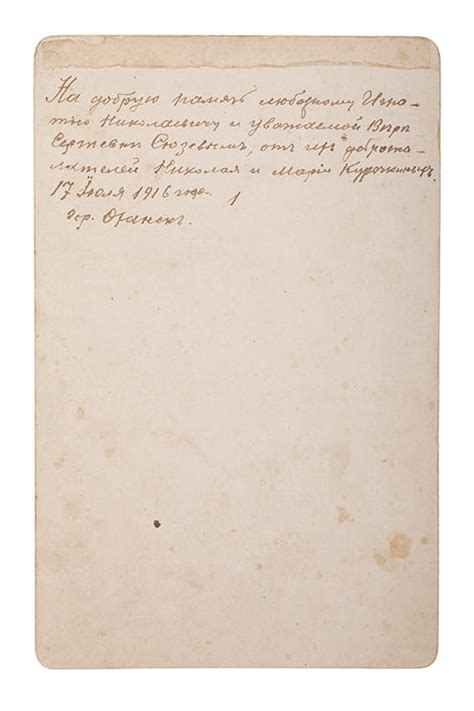 На добрую память любезному Игна-
тию Николаевичу и уважаемой Вѣрѣ
Сергѣевнѣ Сюзевымъ, отъ ихъ доброже-
лателей Николая и Маріи Курочкиныхъ.
17 Июля 1916 года.
гор. Оханскъ.